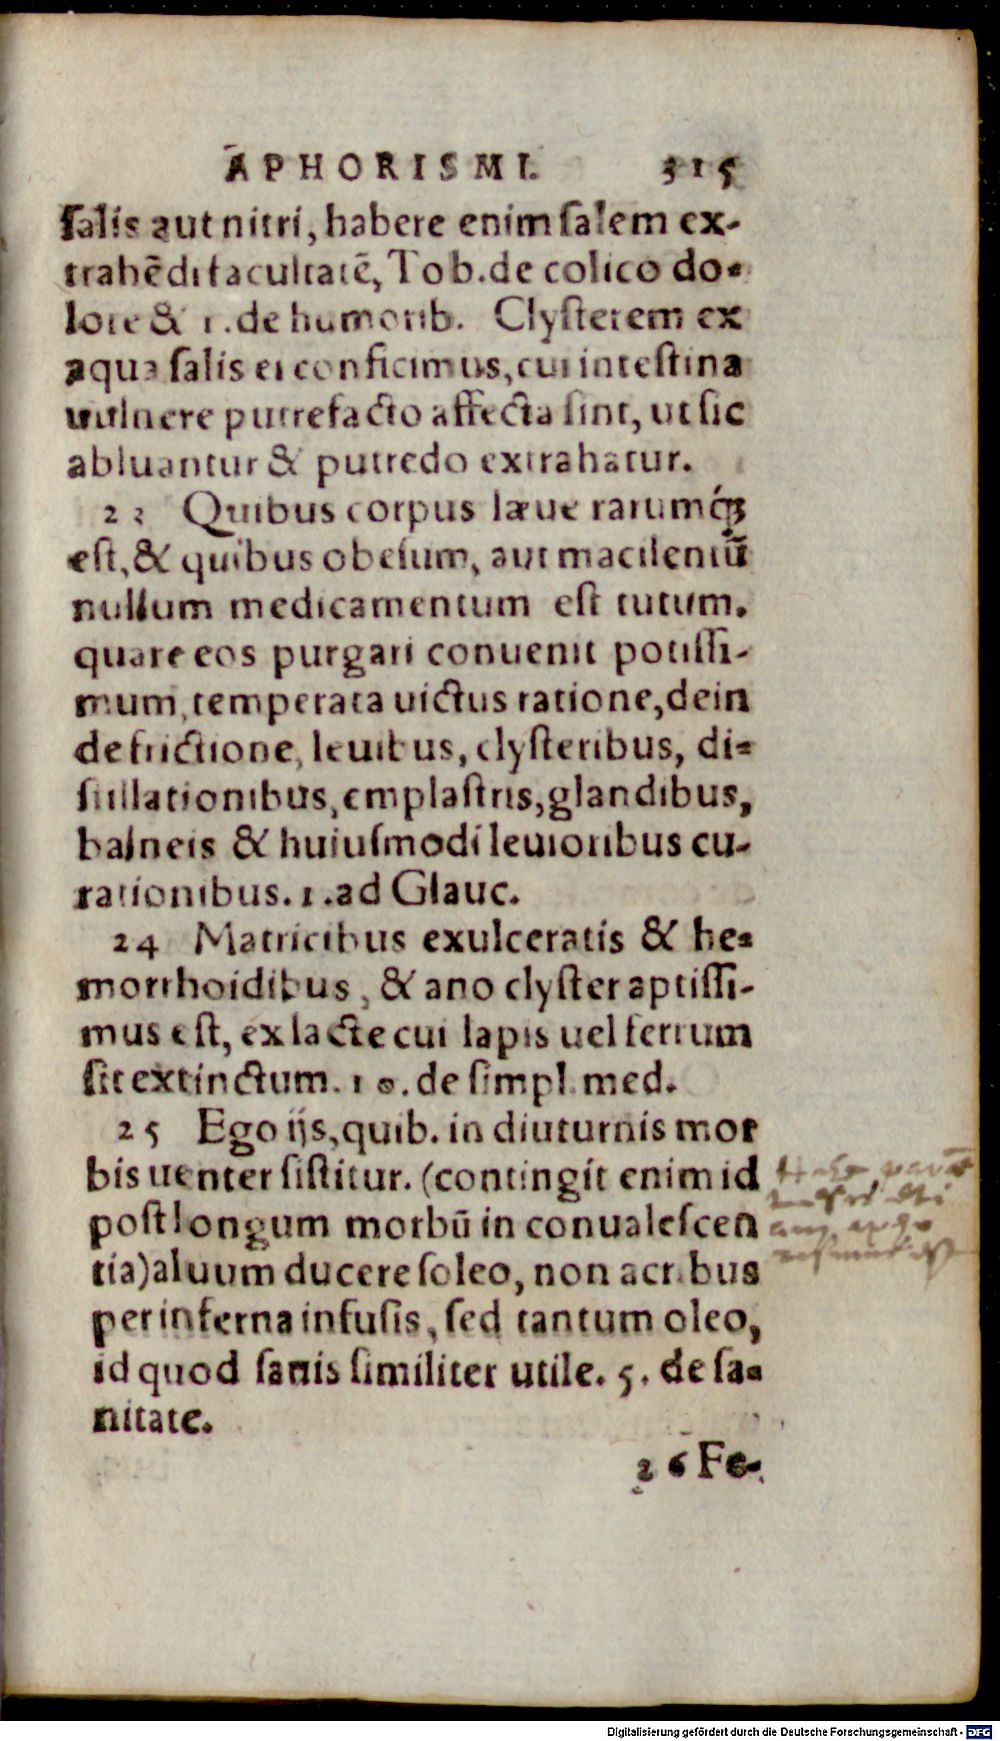 APHORISMI. 315
ſalis aut nitri, habere enim ſalem ex-
trahēdi facultatē, Tob. de colico do-
lore & 1. de humorib. Clyſterem ex
aqua ſalis ei conficimus, cui inteſtina
uulnere putrefacto affecta ſint, ut ſic
abluantur & putredo extrahatur.
23 Quibus corpus læue rarumq́ꝫ
eſt, & quibus obeſum, aut macilentū
nullum medicamentum eſt tutum.
quare eos purgari conuenit potiſſi-
mum, temperata uictus ratione, dein
de frictione, leuibus, clyſteribus, di-
ſtillationibus, emplaſtris, glandibus,
balneis & huiuſmodi leuioribus cu-
rationibus. 1. ad Glauc.
24 Matricibus exulceratis & he-
morrhoidibus, & ano clyſter aptiſſi-
mus eſt, ex lacte cui lapis uel ferrum
ſit extinctum. 10. de ſimpl. med.
25 Ego ijs, quib. in diuturnis mor
bis uenter ſiſtitur. (contingit enim id
poſt longum morbū in conualeſcen
tia) aluum ducere ſoleo, non acribus
per inferna infuſis, ſed tantum oleo,
id quod ſanis ſimiliter utile. 5. de ſa-
nitate.
26 Fe-
Digitalisierung gefördert durch die Deutsche Forschungsgemeinschaft - DFG